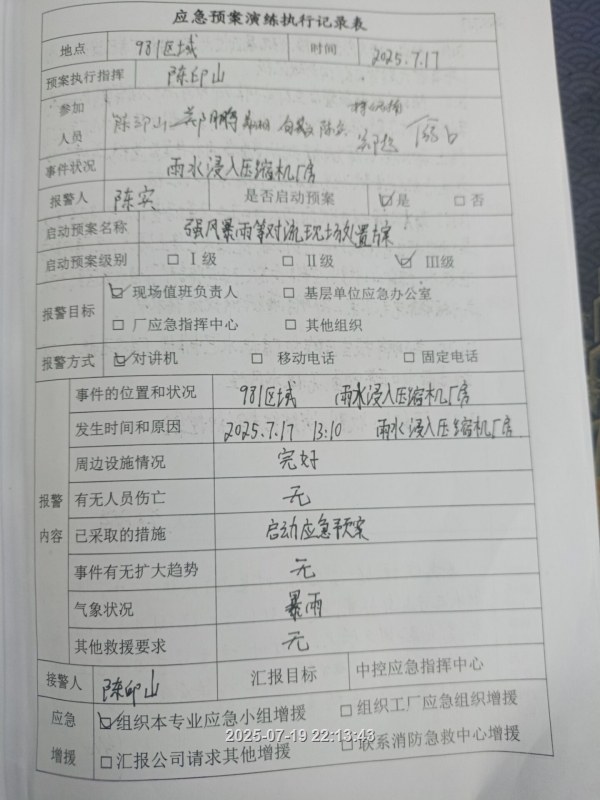 应急预案演练执行记录表
地点 981区域 时间 2025.7.17
预案执行指挥 陈印山
参加人员 陈印山
事件状况 雨水浸入压缩机厂房
报警人 陈实 是否启动预案 ☑是 □否
启动预案名称 强风暴雨等对流现场处置方案
启动预案级别 □Ⅰ级 □Ⅱ级 ☑Ⅲ级
报警目标 ☑现场值班负责人 □基层单位应急办公室
□厂应急指挥中心 □其他组织
报警方式 ☑对讲机 □移动电话 □固定电话
报警内容 事件的位置和状况 981区域 雨水浸入压缩机厂房
发生时间和原因 2025.7.17 13:10 雨水浸入压缩机厂房
周边设施情况 完好
有无人员伤亡 无
已采取的措施 启动应急预案
事件有无扩大趋势 无
气象状况 暴雨
其他救援要求 无
接警人 陈印山 汇报目标 中控应急指挥中心
应急增援 ☑组织本专业应急小组增援 □组织工厂应急组织增援
□汇报公司请求其他增援 □联系消防急救中心增援
2025-07-19 22:13:43